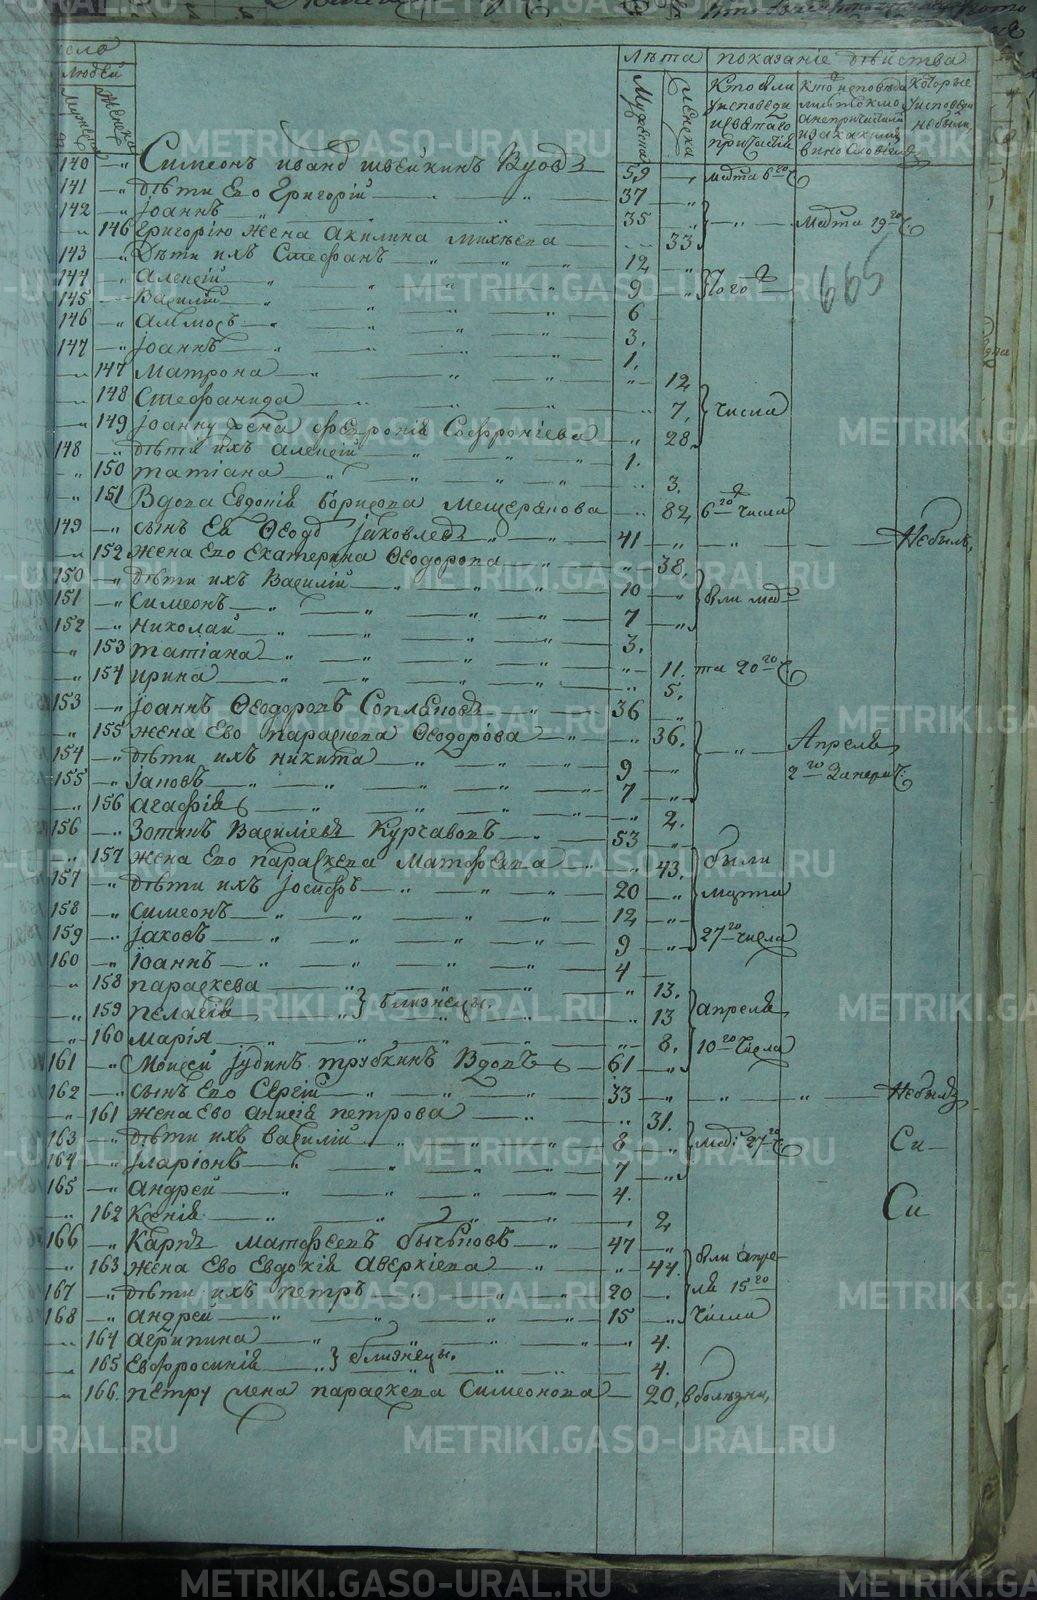 число
людей
Мужеска
Женска
лѣта
показанiе дѣйства
Мужеска
Женска
Кто были
у исповеди
и святаго
причастiя
Кто исповеда
лись токмо
а не причастили
и за какими
винословiями
Которые
у исповеди
не были
140 — " Симеонъ ивановъ швейкинъ Вдовъ — 59 — " марта 6го ч
141 — " дѣти Ево Григорiй — 37 — "
142 — " Iоаннъ — " — 35 — " } — " — Марта 19го ч
— " 146 Григорiю жена Акилина Михѣева — 33
143 — " Дѣти ихъ Стефанъ — " — 12 — "
144 — " Алексiй — " — 9 — " } того ч
665
145 — " Василiй — " — 6
146 — " Аммосъ — " — 3.
147 — " Iоаннъ — " — 1.
— " 147 Матрона — " — " — 12
— " 148 Стефанида — " — 7, } числа
— " 149 Iоанну жена Феѳронiя Софронiева — " — 28.
148 — " дѣти ихъ Алексiй — " — 1.
— " 150 татiана — " — 3.
— " 151 Вдова Евдокiя Борисова Мещерякова — " — 82 6го числа
149 — " сынъ Ея Ѳеодоръ Iаковлевъ — " — 41 — " — " — Небылъ,
— " 152 жена Ево Екатерина Ѳеодорова — " — 38,
150 — " дѣти ихъ Василiй — " — 10 — " } были мар
151 — " Симеонъ — " — 7 — "
152 — " Николай — " — 3.
— " 153 татiана — " — 11. та 20го ч
— " 154 ирина — " — 5.
153 — " Iоаннъ Ѳеодоровъ Сопляковъ — " — 36 — "
— " 155 жена Ево параскева Ѳеодорова — " — 36. } — " — Апреля
154 — " дѣти ихъ никита — " — 9 — " 2го
155 — " Iаковъ — " — 7 — "
— " 156 агафiя — " — 2.
156 — " Зотикъ Василiевъ Курчавовъ — " — 53 — "
— " 157 жена Ево параскева Матфеева — " — 43. } были
157 — " дѣти ихъ Iосифъ — " — 20 — " марта
158 — " симеонъ — " — 12 — "
159 — " Iаковъ — " — 9 — " 27го числа
160 — " Iоаннъ — " — 4 —
— " 158 параскева — " — 13.
— " 159 пелагiя — " } близнецы. — " — 13 } апреля
— " 160 марiя — " — 8. 10го числа
161 — " Моисей Iудинъ трубкинъ Вдовъ — 61 — "
162 — " сынъ Ево Сергiй — " — 33 — " — " — Небылъ
— " 161 жена Ево Анисiя петрова — " — 31.
163 — " дѣти ихъ василiй — " — 8 — " } мар: 27го ч Си —
164 — " Iларiонъ — " — 7 — "
165 — " Андрей — " — 4. Си
— " 162 Ксенiя — " — 2
166 — " Карпъ Матфеевъ бычковъ — " — 47 — "
— " 163 жена Ево Евдокiя Аверкiева — " — 44. } были Апре-
167 — " дѣти ихъ петръ — " — 20 — ля 15го
168 — " андрей — " — 15 — " числа
— " 164 агрипина — " — 4.
— " 165 Евфросинiя — " } близнецы. — 4.
— " 166. петру жена параскева Симеонова — 20, в болѣзни,